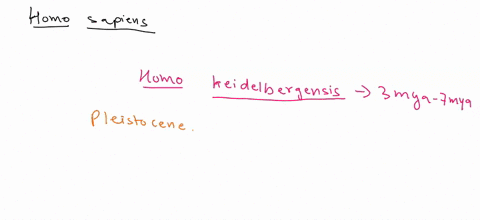 Homo sapiens
Homo heidelbergensis → 3mya-7mya
Pleistocene.